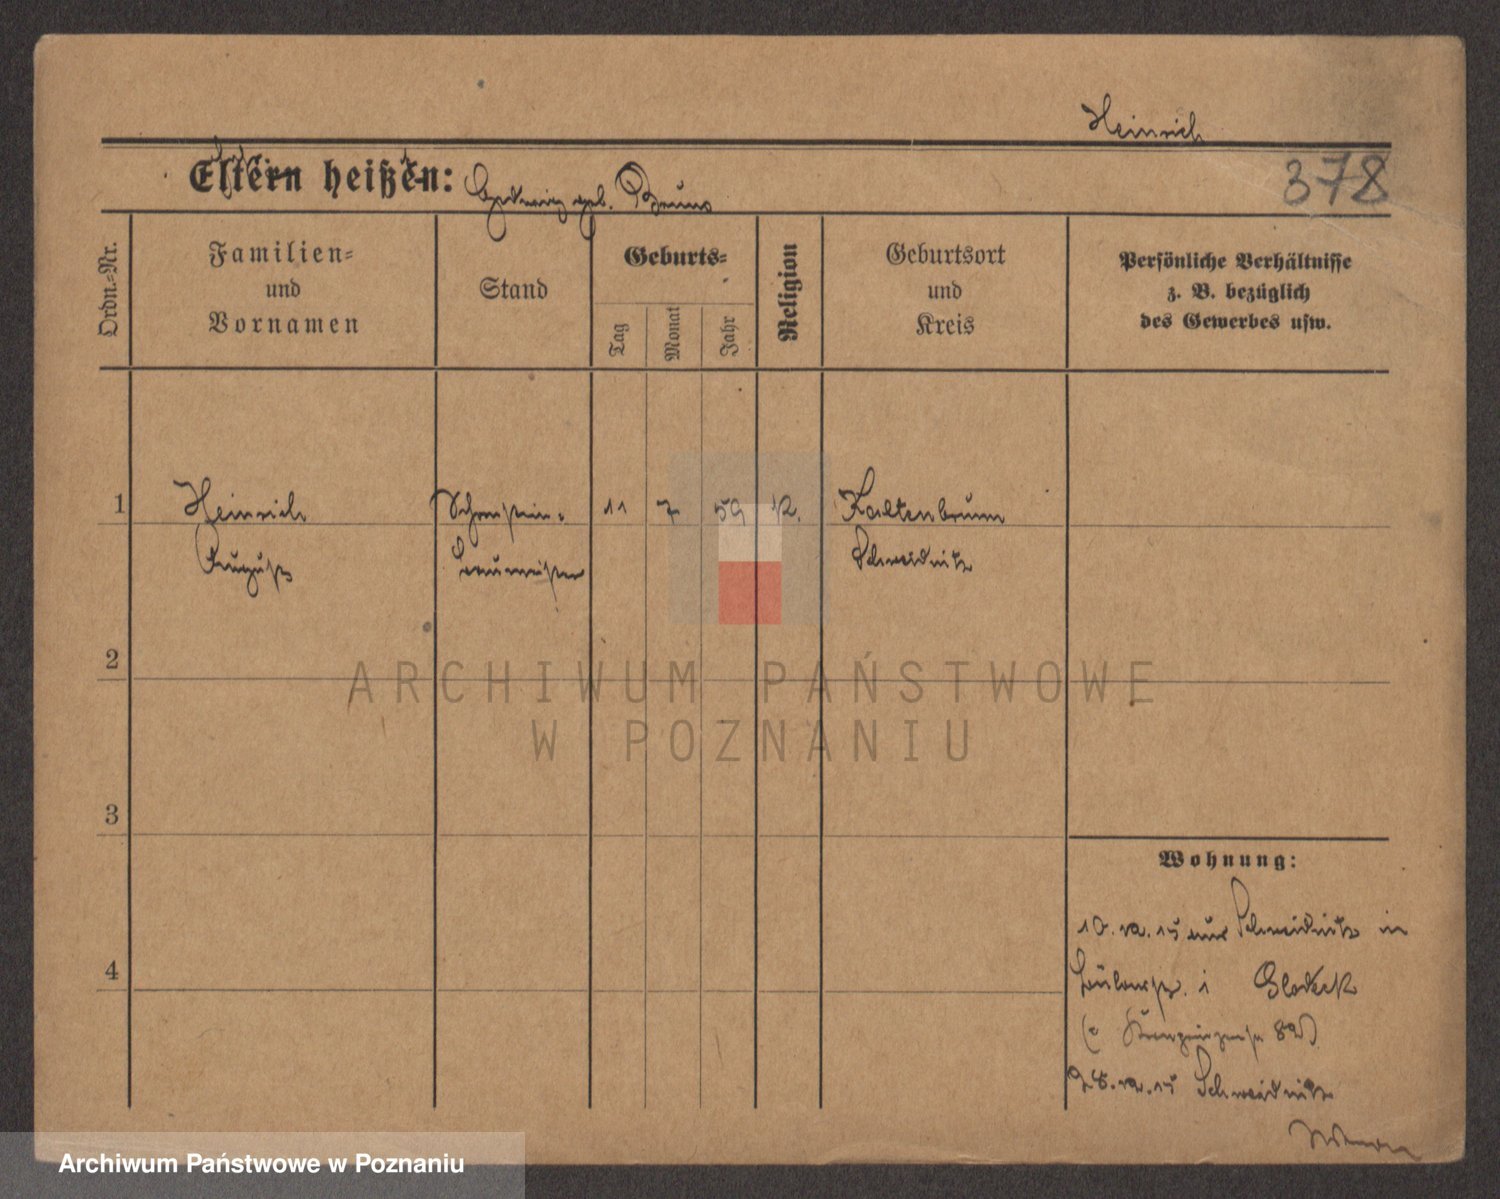 Heinrich
378
Eltern heißen:
Hedwig geb. Bruno
Ordn.-Nr.
Familien-
und
Vornamen
Stand
Geburts-
Tag
Monat
Jahr
Religion
Geburtsort
und
Kreis
Persönliche Verhältnisse
z. B. bezüglich
des Gewerbes usw.
1 Heinrich Schornstein- 11 7 59 K. Kaltenbrunn
August baumeister Schweidnitz
2
3
4
Wohnung:
10. 12. 15 aus Schweidnitz in
Bülowstr. 1
28. 12. 15 Schweidnitz
ARCHIWUM PAŃSTWOWE
W POZNANIU
Archiwum Państwowe w Poznaniu